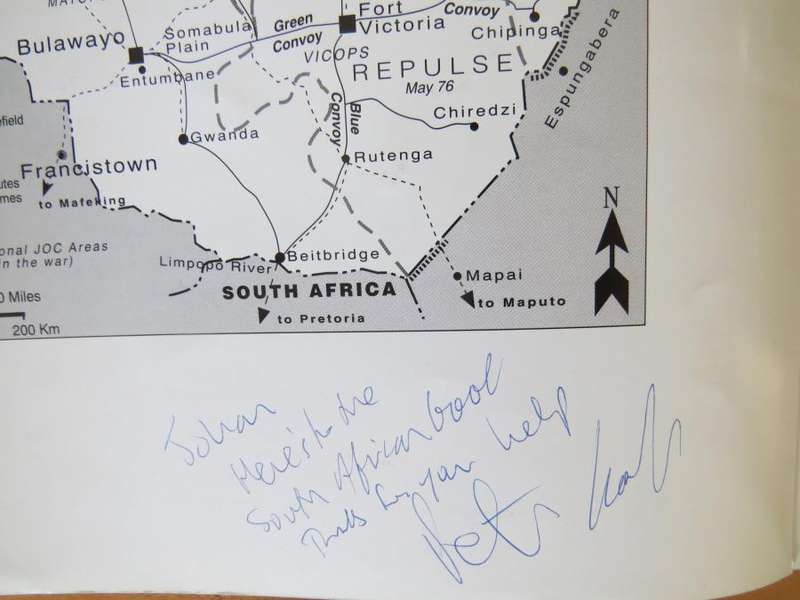 Somabula
Plain
Green
Convoy
Fort
Victoria
Convoy
Chipinga
Bulawayo
Entumbane
VICOPS
REPULSE
May 76
Espungabera
Chiredzi
Blue
Convoy
Gwanda
Rutenga
Francistown
to Mafeking
JOC Areas
in the war)
Limpopo River
Beitbridge
SOUTH AFRICA
Mapai
to Maputo
to Pretoria
N
Miles
200 Km
Johan
Here's to the
South African book
Thanks for your help
Peter